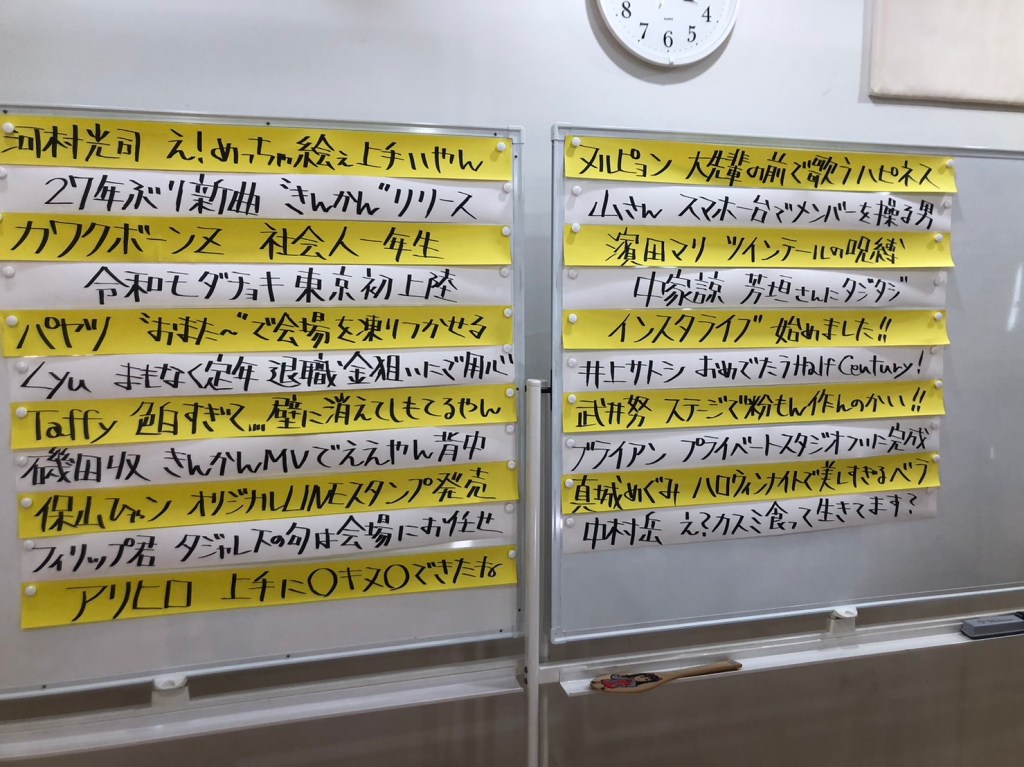 河村光司 え!めっちゃ絵ぇ上手いやん
27年ぶり新曲 "きんかん"リリース
カワクボーンヌ 社会人一年生
令和モダチョキ東京初上陸
パヤツ "おまた〜"で会場を凍りつかせる
Lyu まもなく定年 退職金狙いにご用心
Taffy 色白すぎて、、、、壁に消えてしもてるやん
磯田収 きんかんMVでええやん背中
保山ひャン オリジナルLINEスタンプ発売
フィリップ君 ダジャレスの句は会場にお任せ
アリヒロ 上手に〇キヌ〇できたね
8
7
6
5
4
ヌルピョン 大先輩の前で歌うハピネス
山さん スマホ一台でメンバーを操る男
濱田マリ ツインテールの呪縛
中家諒 芳垣さんにタジタジ
インスタライブ 始めました!!
井上サトシ おめでたうHalf Century!
武井努 ステージで粉もん作んのかい!!
ブライアン プライベートスタジオついに完成
真城めぐみ ハロウィンナイトで美しすぎるベラ
中村岳 え?カスミ食って生きてます?